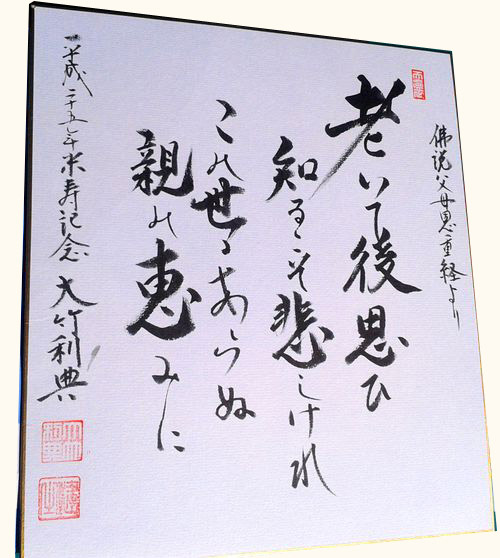 佛説父母恩重経より
老いて後思ひ
知るこそ悲しけれ
この世にあらぬ
親の恵みに
平成二十五年米寿記念 大竹利典